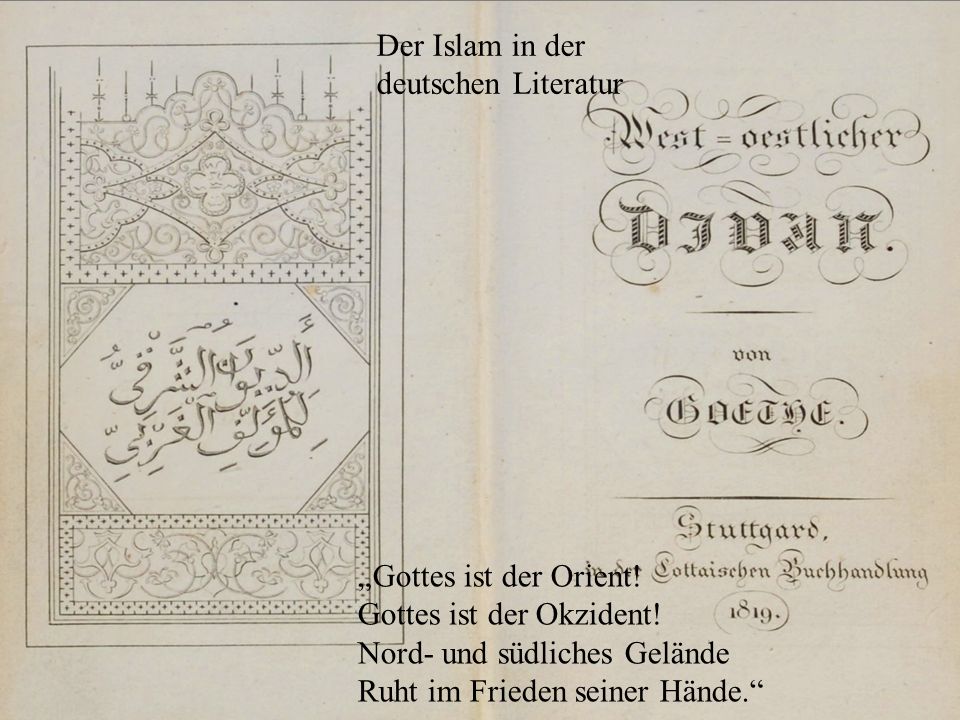 Der Islam in der
deutschen Literatur
West=oestlicher
DIVAN.
von
GOETHE.
Stuttgard,
in der Cottaischen Buchhandlung
1819.
أَلدِّيوَانُ الشَّرْقِىُّ
لِلْمُؤَلِّفِ الْغَرْبِىِّ
„Gottes ist der Orient!
Gottes ist der Okzident!
Nord- und südliches Gelände
Ruht im Frieden seiner Hände.“